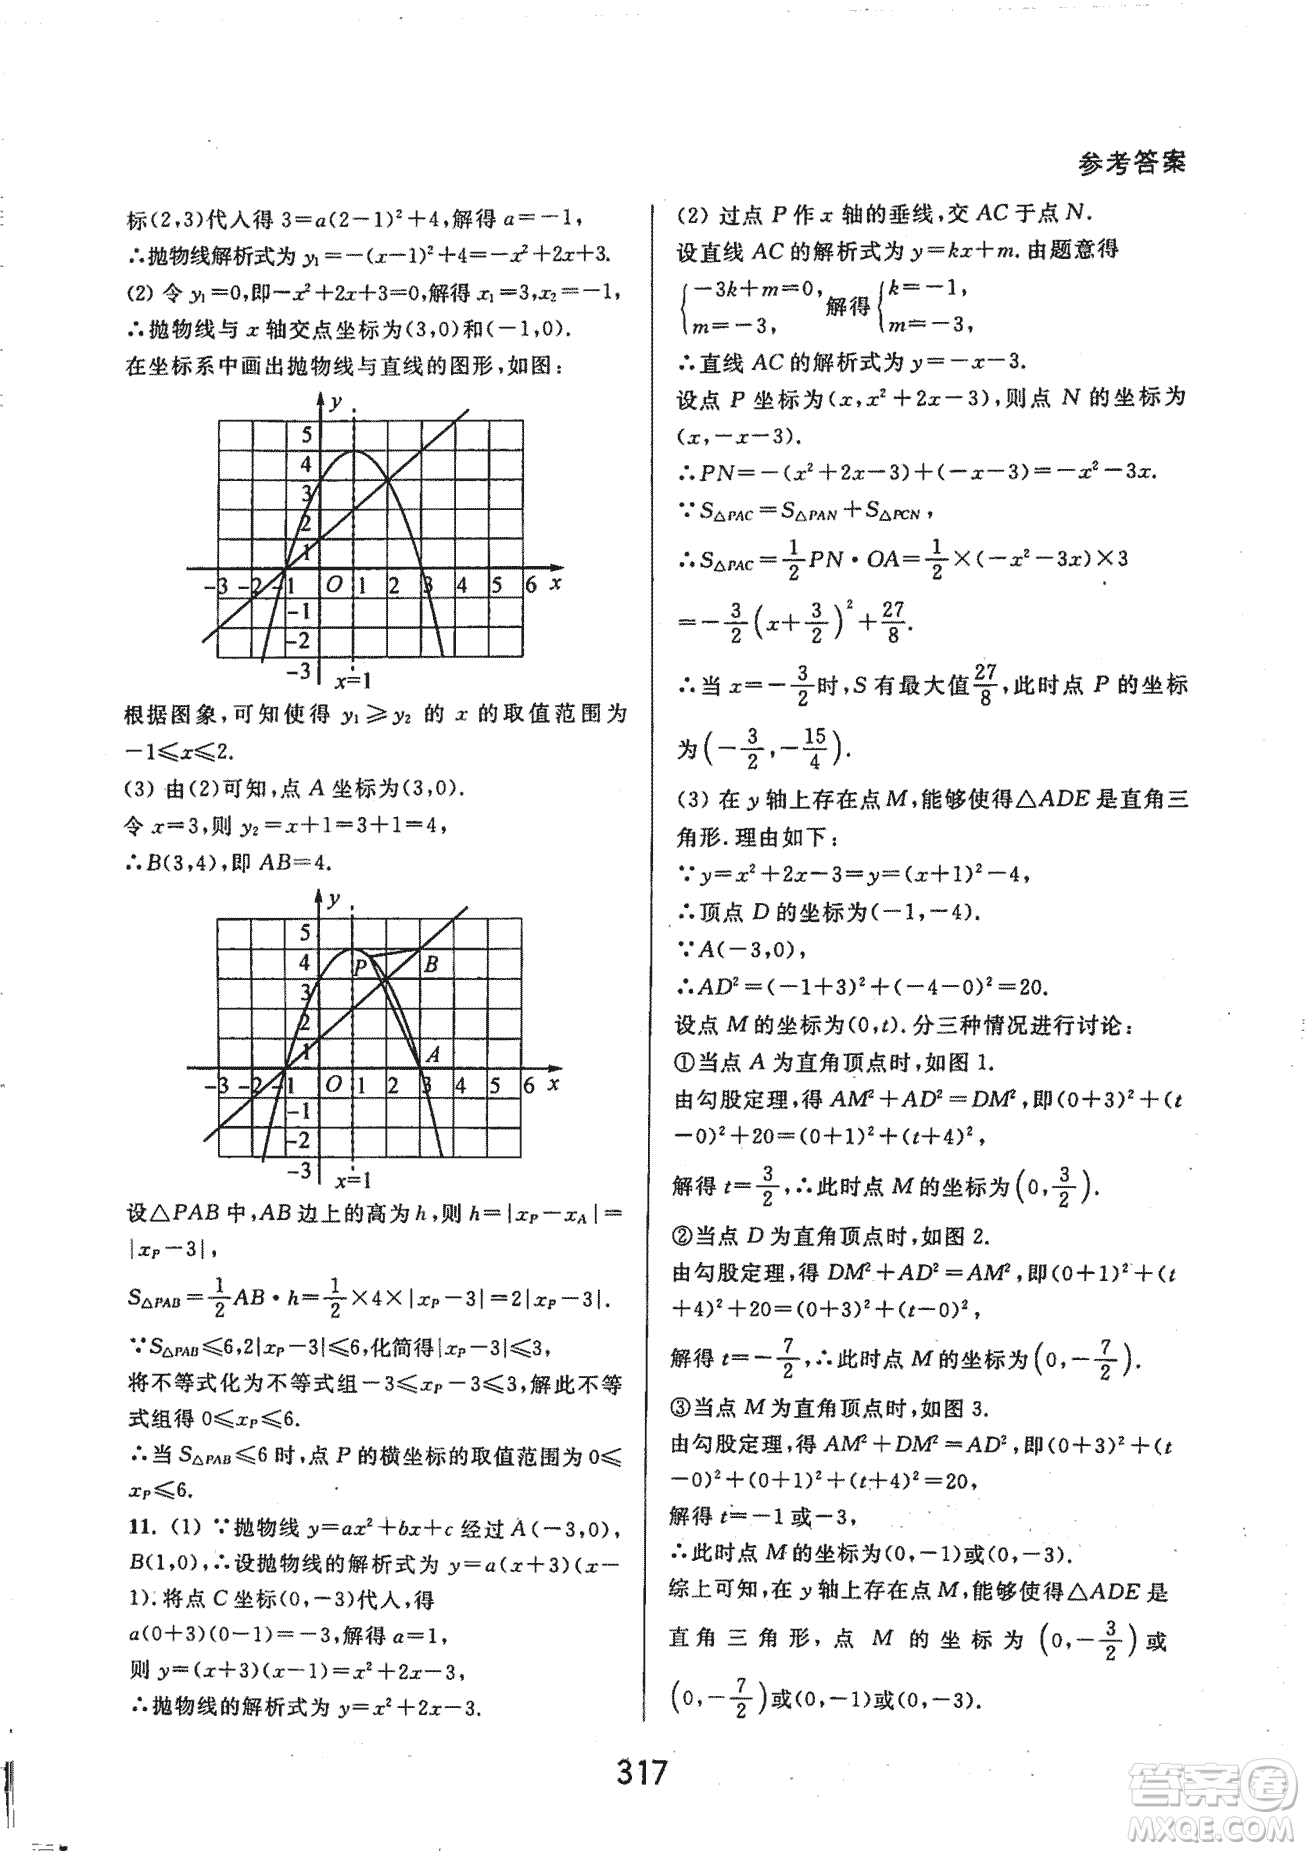 参考答案
标(2,3)代人得 3=a(2-1)²+4,解得 a=-1,
∴抛物线解析式为 y₁=-(x-1)²+4=-x²+2x+3.
(2) 令 y₁=0,即-x²+2x+3=0,解得 x₁=3,x₂=-1,
∴抛物线与 x 轴交点坐标为(3,0)和(-1,0).
在坐标系中画出抛物线与直线的图形,如图:
y
5
4
3
2
1
-3 -2 -1 O 1 2 3 4 5 6 x
-1
-2
-3
x=1
根据图象,可知使得 y₁⩾y₂ 的 x 的取值范围为
-1⩽x⩽2.
(3) 由(2)可知,点 A 坐标为(3,0).
令 x=3,则 y₂=x+1=3+1=4,
∴B(3,4),即 AB=4.
y
5
4 P B
3
2
1 A
-3 -2 -1 O 1 2 3 4 5 6 x
-1
-2
-3
x=1
设△PAB 中,AB 边上的高为 h,则 h=|xP-xA|=
|xP-3|,
S△PAB=1/2 AB·h=1/2×4×|xP-3|=2|xP-3|.
∵S△PAB⩽6,2|xP-3|⩽6,化简得|xP-3|⩽3,
将不等式化为不等式组-3⩽xP-3⩽3,解此不等
式组得 0⩽xP⩽6.
∴当 S△PAB⩽6 时,点 P 的横坐标的取值范围为 0⩽
xP⩽6.
11. (1) ∵抛物线 y=ax²+bx+c 经过 A(-3,0),
B(1,0),∴设抛物线的解析式为 y=a(x+3)(x-
1).将点 C 坐标(0,-3)代人,得
a(0+3)(0-1)=-3,解得 a=1,
则 y=(x+3)(x-1)=x²+2x-3,
∴抛物线的解析式为 y=x²+2x-3.
(2) 过点 P 作 x 轴的垂线,交 AC 于点 N.
设直线 AC 的解析式为 y=kx+m.由题意得
{-3k+m=0, m=-3, 解得{k=-1, m=-3,
∴直线 AC 的解析式为 y=-x-3.
设点 P 坐标为(x,x²+2x-3),则点 N 的坐标为
(x,-x-3).
∴PN=-(x²+2x-3)+(-x-3)=-x²-3x.
∵S△PAC=S△PAN+S△PCN,
∴S△PAC=1/2 PN·OA=1/2×(-x²-3x)×3
=-3/2(x+3/2)²+27/8.
∴当 x=-3/2时,S 有最大值27/8,此时点 P 的坐标
为(-3/2,-15/4).
(3) 在 y 轴上存在点 M,能够使得△ADE 是直角三
角形.理由如下:
∵y=x²+2x-3=y=(x+1)²-4,
∴顶点 D 的坐标为(-1,-4).
∵A(-3,0),
∴AD²=(-1+3)²+(-4-0)²=20.
设点 M 的坐标为(0,t).分三种情况进行讨论:
①当点 A 为直角顶点时,如图 1.
由勾股定理,得 AM²+AD²=DM²,即(0+3)²+(t
-0)²+20=(0+1)²+(t+4)²,
解得 t=3/2,∴此时点 M 的坐标为(0,3/2).
②当点 D 为直角顶点时,如图 2.
由勾股定理,得 DM²+AD²=AM²,即(0+1)²+(t
+4)²+20=(0+3)²+(t-0)²,
解得 t=-7/2,∴此时点 M 的坐标为(0,-7/2).
③当点 M 为直角顶点时,如图 3.
由勾股定理,得 AM²+DM²=AD²,即(0+3)²+(t
-0)²+(0+1)²+(t+4)²=20,
解得 t=-1 或-3,
∴此时点 M 的坐标为(0,-1)或(0,-3).
综上可知,在 y 轴上存在点 M,能够使得△ADE 是
直角三角形,点 M 的坐标为(0,-3/2)或
(0,-7/2)或(0,-1)或(0,-3).
317
答案圈
MXQE.COM